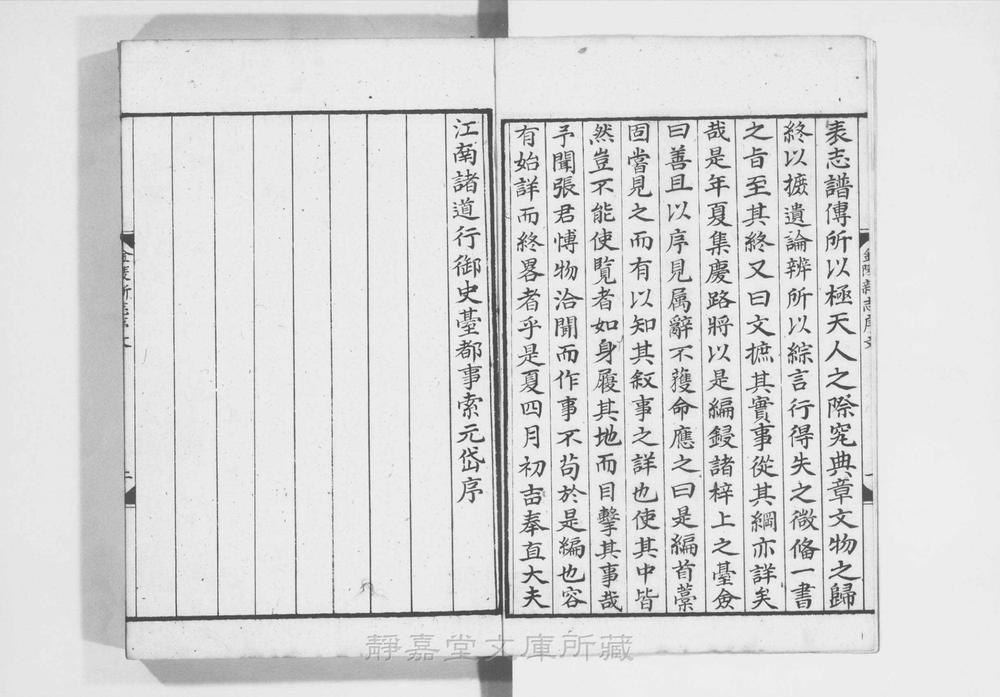 表志譜傳所以極天人之際究典章文物之歸
終以摭遺論辨所以綜言行得失之微俻一書
之旨至其終又曰文摭其實事從其綱亦詳矣
哉是年夏集慶路將以是編鋟諸梓上之臺僉
曰善且以序見属辭不獲命應之曰是編首藁
固嘗見之而有以知其叙事之詳也使其中皆
然豈不能使覧者如身履其地而目擊其事哉
予聞張君愽物洽聞而作事不苟於是編也容
有始詳而終畧者乎是夏四月初吉奉直大夫
江南諸道行御史臺都事索元岱序
金陵新志序文
一
金陵新志序文
二
靜嘉堂文庫所藏